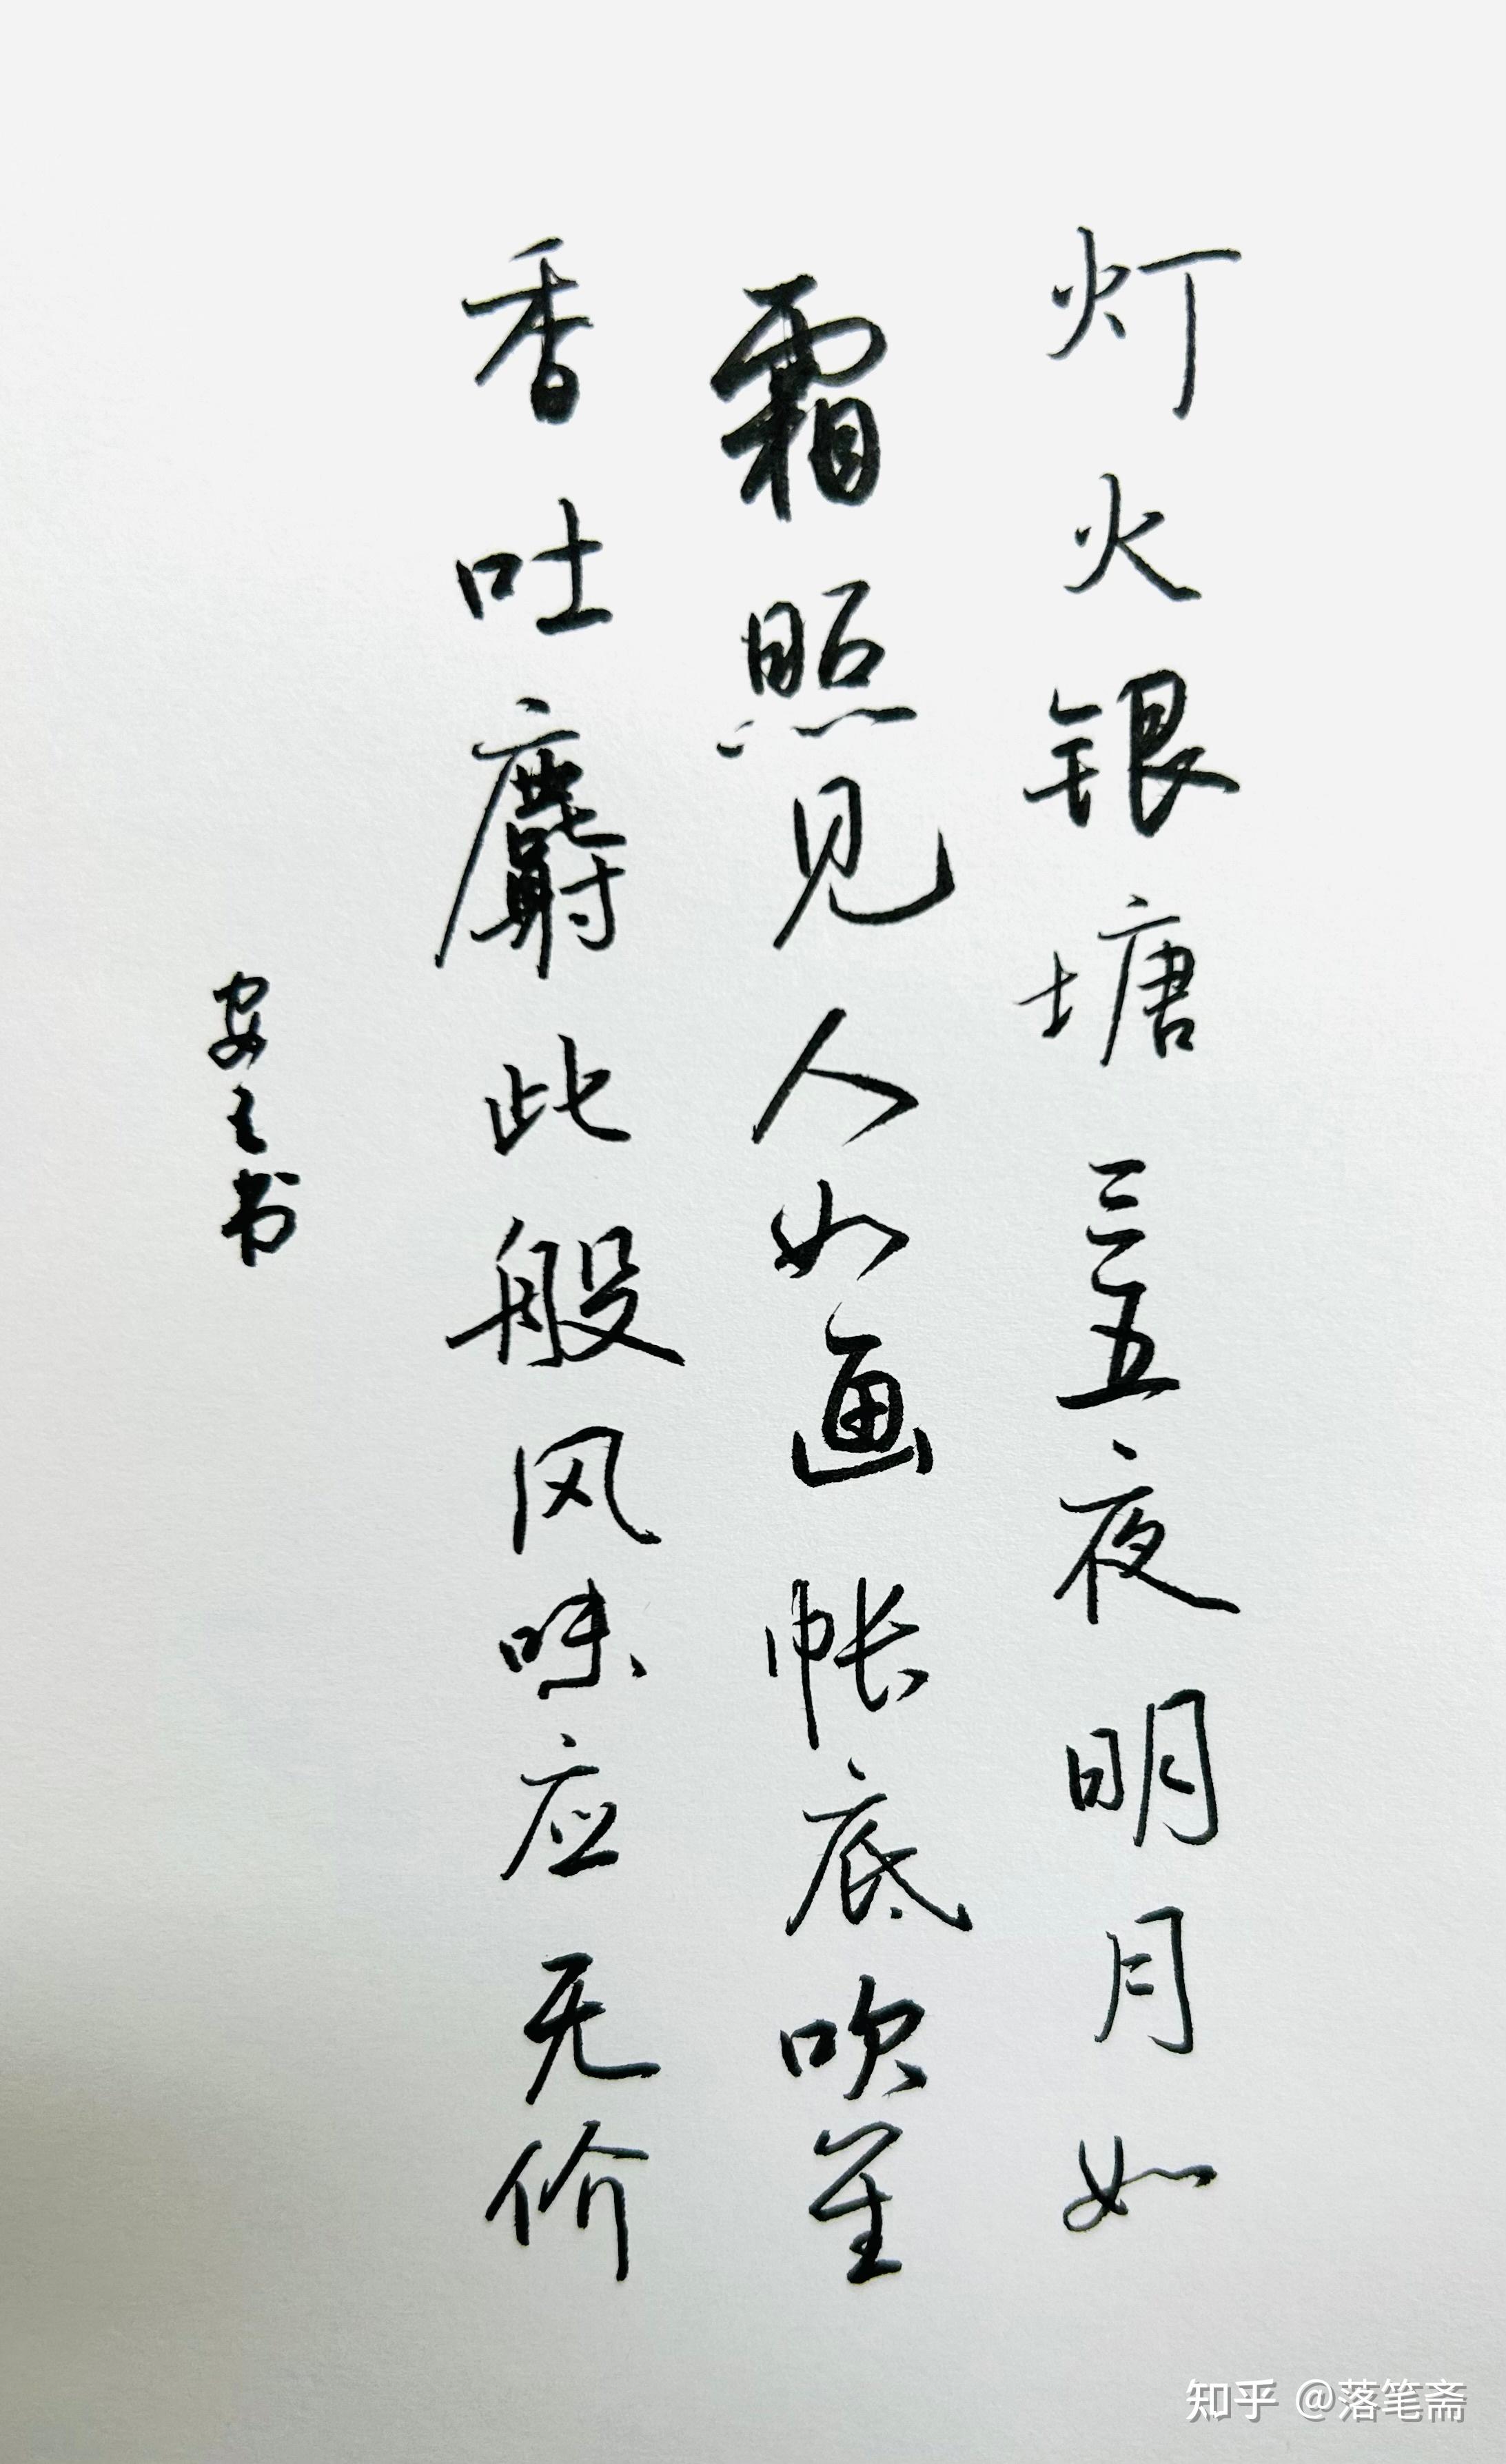 灯火银塘三五夜明月如
霜照见人如画帐底吹笙
香吐麝此般风味应无价
安之书
知乎 @落笔斋